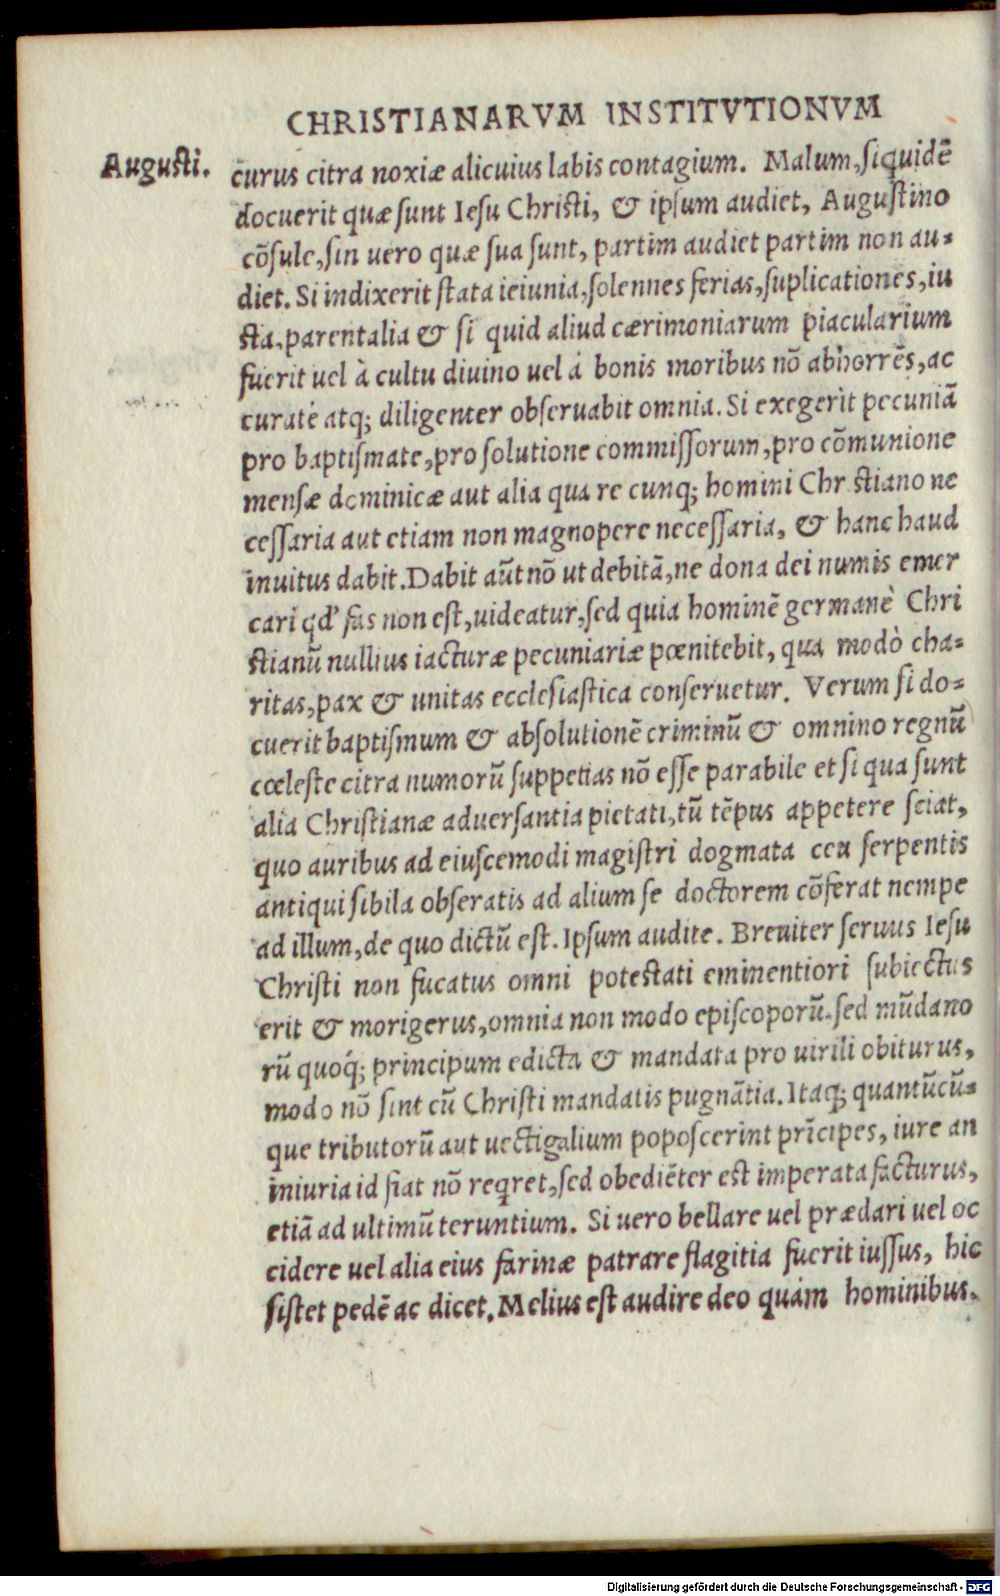 CHRISTIANARVM INSTITVTIONVM
Augusti.
curus citra noxiæ alicuius labis contagium. Malum, siquidē
docuerit quæ sunt Iesu Christi, & ipsum audiet, Augustino
cōsule, sin uero quæ sua sunt, partim audiet partim non au-
diet. Si indixerit stata ieiunia, solennes ferias, suplicationes, iu
sta, parentalia & si quid aliud cærimoniarum piacularium
fuerit uel à cultu diuino uel á bonis moribus nō abhorrēs, ac
curatè atq; diligenter obseruabit omnia. Si exegerit pecuniā
pro baptismate, pro solutione commissorum, pro cōmunione
mensæ dominicæ aut alia qua re cunq; homini Chr stiano ne
cessaria aut etiam non magnopere necessaria, & hanc haud
inuitus dabit. Dabit aūt nō ut debitā, ne dona dei numis emer
cari qd' fas non est, uideatur, sed quia hominē germanè Chri
stianū nullius iacturæ pecuniariæ pœnitebit, qua modò cha-
ritas, pax & unitas ecclesiastica conseruetur. Verum si do-
cuerit baptismum & absolutionē criminū & omnino regnū
cœleste citra numorū suppetias nō esse parabile et si qua sunt
alia Christianæ aduersantia pietati, tū tēpus appetere sciat,
quo auribus ad eiuscemodi magistri dogmata ceu serpentis
antiqui sibila obseratis ad alium se doctorem cōferat nempe
ad illum, de quo dictū est. Ipsum audite. Breuiter seruus Iesu
Christi non fucatus omni potestati eminentiori subiectus
erit & morigerus, omnia non modo episcoporū. sed mūdano
rū quoq́; principum edicta & mandata pro uirili obiturus,
modo nō sint cū Christi mandatis pugnātia. Itaq; quantūcū-
que tributorū aut uectigalium poposcerint prīcipes, iure an
iniuria id fiat nō reqret, sed obediēter est imperata facturus,
etiā ad ultimū teruntium. Si uero bellare uel prædari uel oc
cidere uel alia eius farinæ patrare flagitia fuerit iussus, hic
sistet pedē ac dicet. Melius est audire deo quàm hominibus.
Digitalisierung gefördert durch die Deutsche Forschungsgemeinschaft - DFG